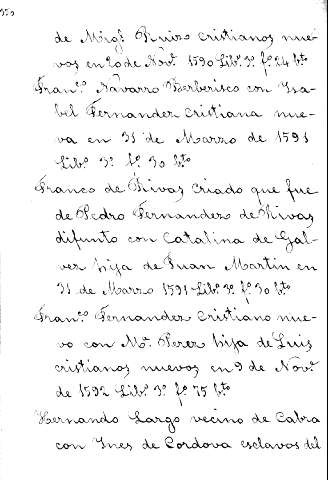 de Migl. Ruiz cristianos nue-
vos en 20 de Novr. 1590 Libº 3º fº 24 bto
Franco. Navarro Berberisco con Isa-
bel Fernandez cristiana nue-
va en 31 de Marzo de 1591
Libº 3º fº 30 bto
Franco de Rivas criado que fue
de Pedro Fernandez de Rivas
difunto con Catalina de Gal-
vez hija de Juan Martin en
31 de Marzo 1591 Libº 3º fº 30 bto
Franco. Fernandez cristiano nue-
vo con Mª. Perez hija de Luis
cristianos nuevos en 9 de Novr.
de 1592 Libº 3º fº 75 bto
Hernando Largo vecino de Cabra
con Ines de Cordova esclavos del